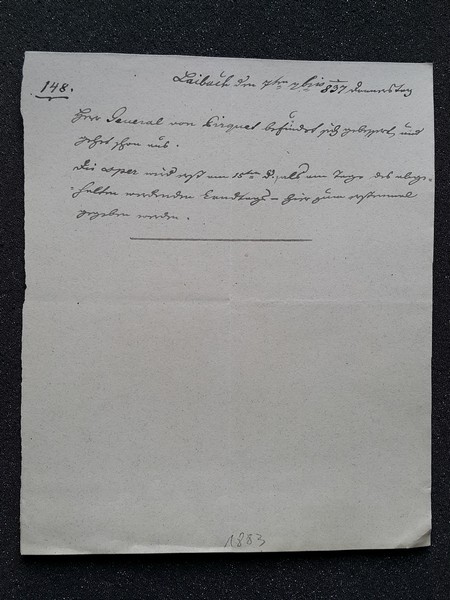 148.
Laibach den 7ten 7bris 1837 Donnerstag
Herr General von Pirquet befindet sich gebessert, und
gehet schon aus.
Die Oper wird erst am 15ten d., als am Tage des abge-
haltenwerdenden Landtags – hier zum erstenmal
gegeben werden.
1883